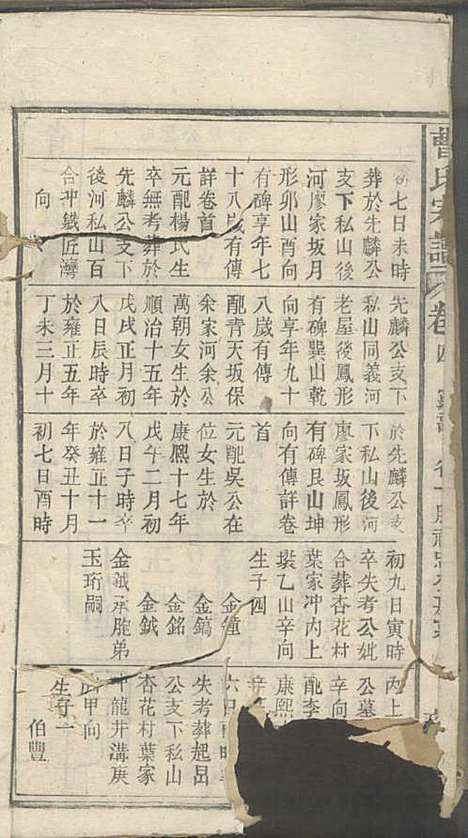 曹氏宗譜 卷四
初七日未時
葬於先麟公
支下私山後
河廖家坂月
形卯山酉向
有碑享年七
十八歲有傳
詳卷首
元配楊氏生
卒無考葬於
先麟公支下
後河私山百
合冲鐵匠灣
向
先麟公支下
私山同義河
老屋後鳳形
有碑巽山乾
向享年九十
八歲有傳
配青天坂保
余家河余公
萬朝女生於
順治十五年
戊戌正月初
八日辰時卒
於雍正五年
丁未三月十
於先麟公支
下私山後河
廖家坂鳳形
有碑艮山坤
向有傳詳卷
首
元配吳公在
位女生於
康熙十七年
戊午二月初
八日子時卒
於雍正十一
年癸丑十月
初七日酉時
初九日寅時
卒失考公妣
合葬杏花村
葉家冲內上
塋乙山辛向
生子四
金鐘
金鎬
金銘
金鉞
金鉞承胞弟
玉珩嗣
內上
公墓
辛向
配李
康熙
失考葬起呂
公支下私山
杏花村葉家
冲龍井溝庚
山甲向
生子一
伯豐